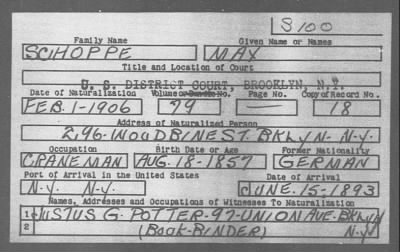 S100
Family Name Given Name or Names
SCHOPPE MAX
Title and Location of Court
U. S. DISTRICT COURT, BROOKLYN, N.Y.
Date of Naturalization Volume or Bundle No. Page No. Copy of Record No.
FEB. 1-1906 79 — 18
Address of Naturalized Person
296-WOODBINE ST. BKLYN- N-Y.
Occupation Birth Date or Age Former Nationality
CRANEMAN AUG-18-1857 GERMAN
Port of Arrival in the United States Date of Arrival
N-Y. N-Y. JUNE-15-1893
Names, Addresses and Occupations of Witnesses To Naturalization
1 JUSTUS G- POTTER-97-UNION AVE-BKLYN
2 (BOOK-BINDER) N-Y.